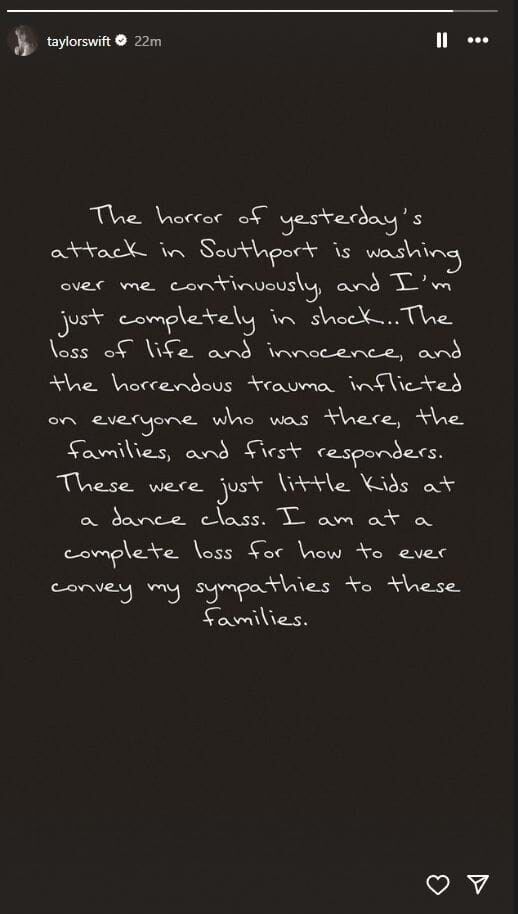 taylorswift 22m
The horror of yesterday's
attack in Southport is washing
over me continuously, and I'm
just completely in shock...The
loss of life and innocence, and
the horrendous trauma inflicted
on everyone who was there, the
families, and first responders.
These were just little kids at
a dance class. I am at a
complete loss for how to ever
convey my sympathies to these
families.